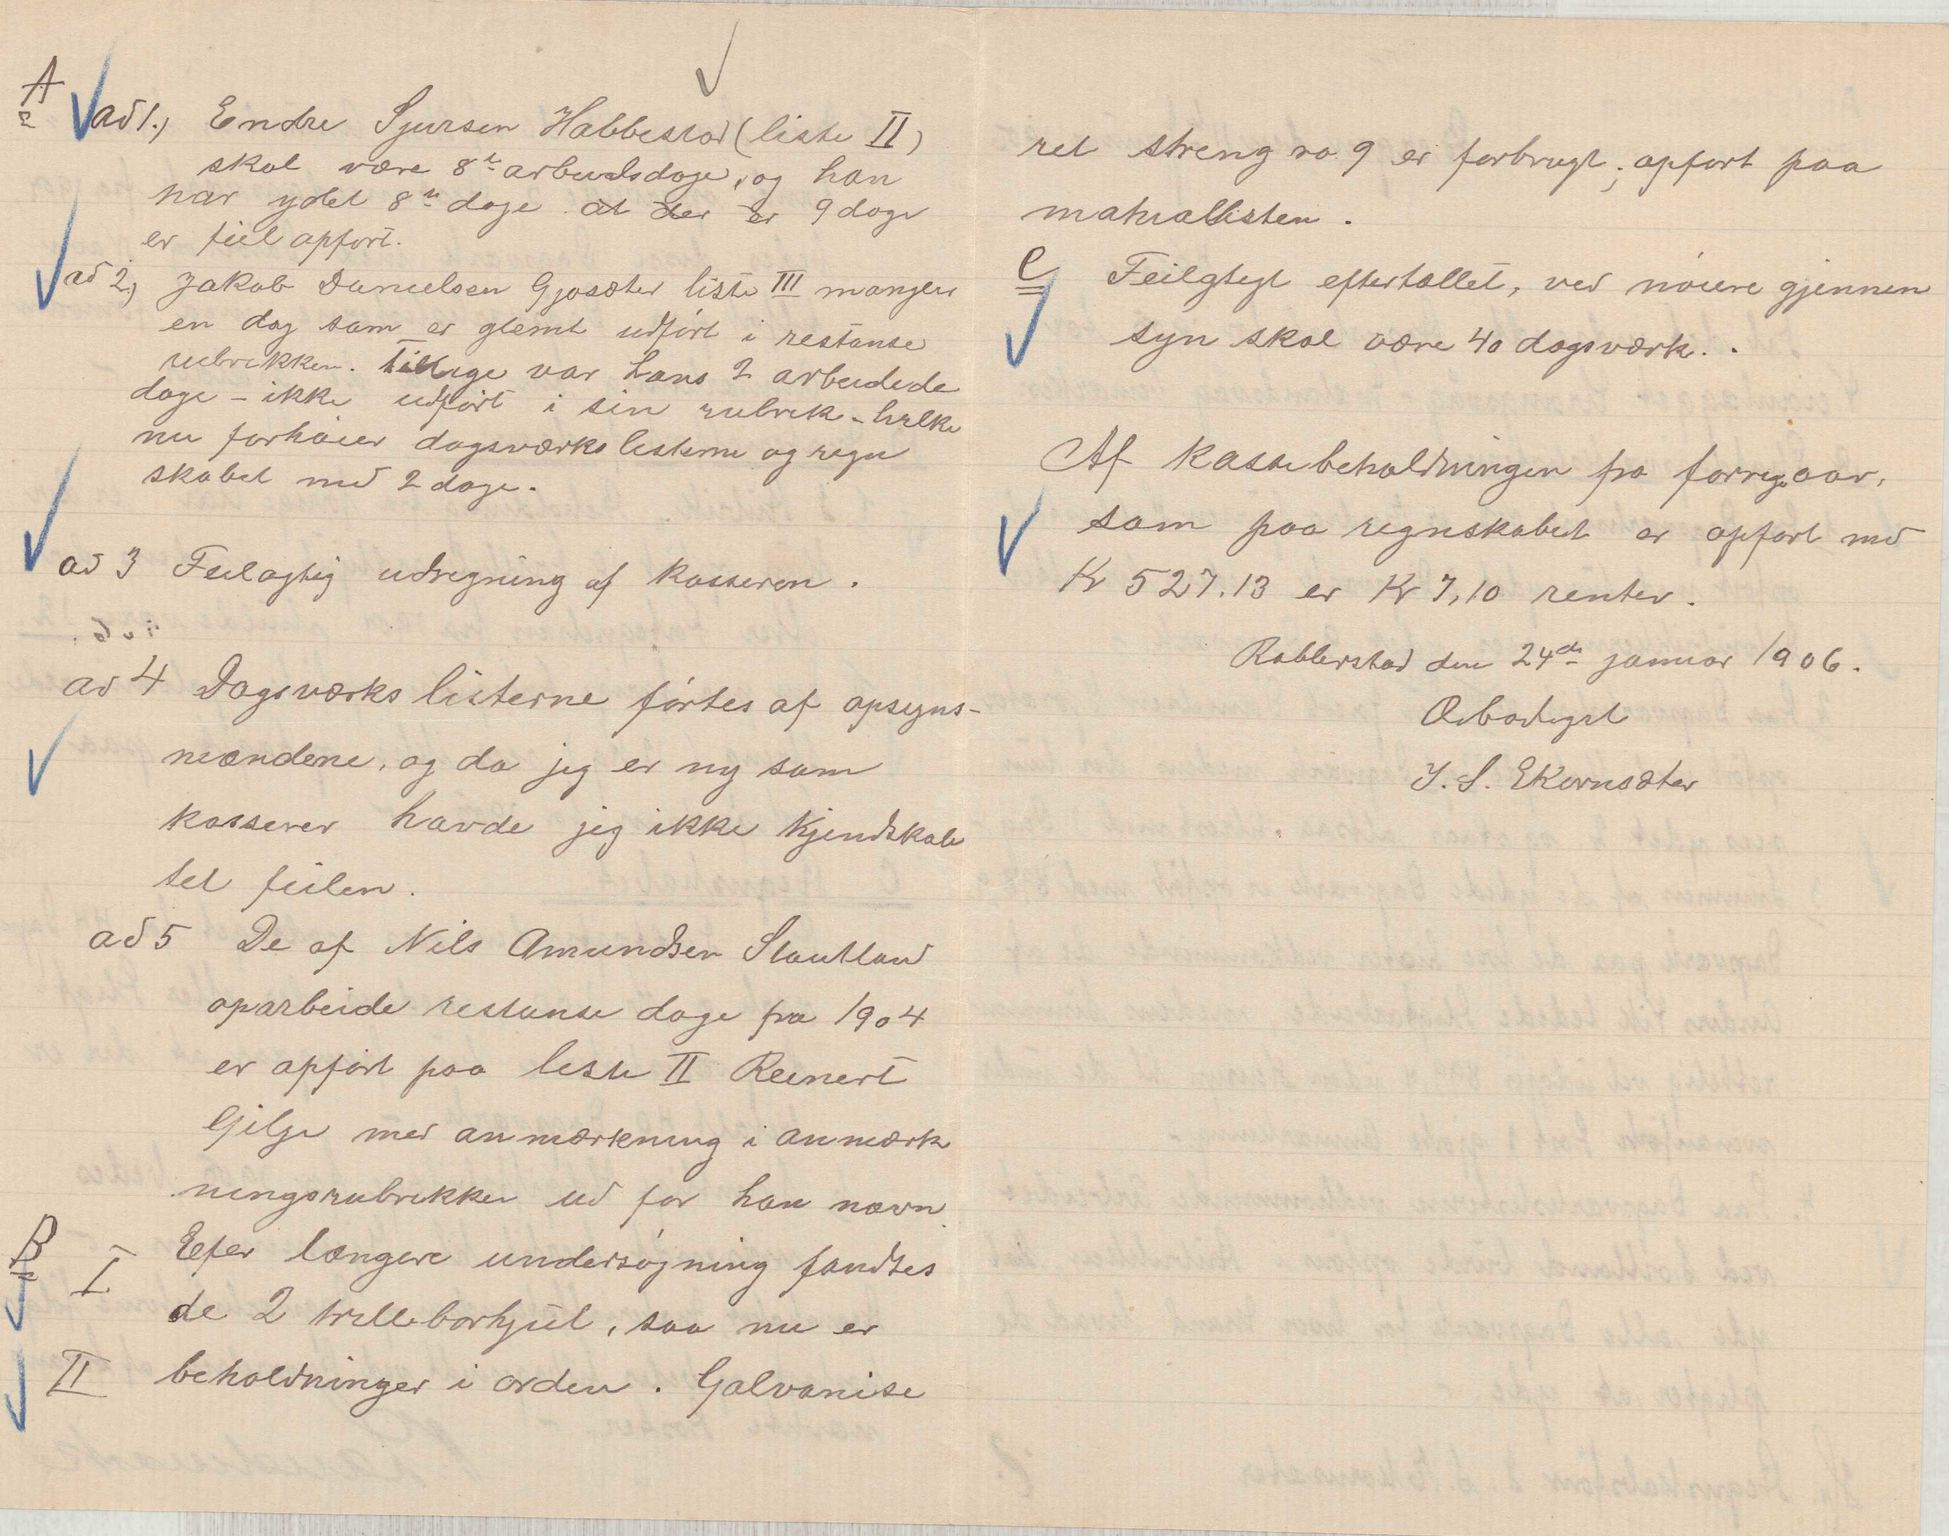 A
ad 1.) Endre Sjursen Habbestad (liste II)
skal være 8te arbeidsdage, og han
har ydet 8te dage at der er 9 dage
er feil opført.
ad 2.) Jakob Danielsen Gjøsæter liste III mangler
en dag som er glemt udført i restanse
rubrikken. Tillige var hans 2 arbeidede
dage - ikke udført i sin rubrik - hvilke
nu forhøier dagsværks listerne og regn
skabet med 2 dage.
ad 3 Feilagtig udregning af kasseren.
ad 4 Dagsværks listerne førtes af opsyns-
mændene, og da jeg er ny som
kasserer havde jeg ikke Kjendskab
til feilen.
ad 5 De af Nils Amundsen
oparbeide restanse dage fra 1904
er opført paa liste II Reinert
Gilje med anmærkning i anmærk
ningsrubrikken ud for han navn
B
I Efter længere undersøgning fandtes
de 2 trillebørhjul, saa nu er
II beholdninger i orden. Galvanise
ret streng no. 9 er forbrugt; opført paa
matrialisten.
C Feilgtigt eftertællet, ved nøiere gjennem
syn skal være 40 dagsværk.
Af Kassebeholdningen fra forrige aar,
som paa regnskabet er opført med
Kr 527.13 er Kr 7,10 renter.
den 24de januar 1906.
Ærbødigst
J. S. Ekornsæter